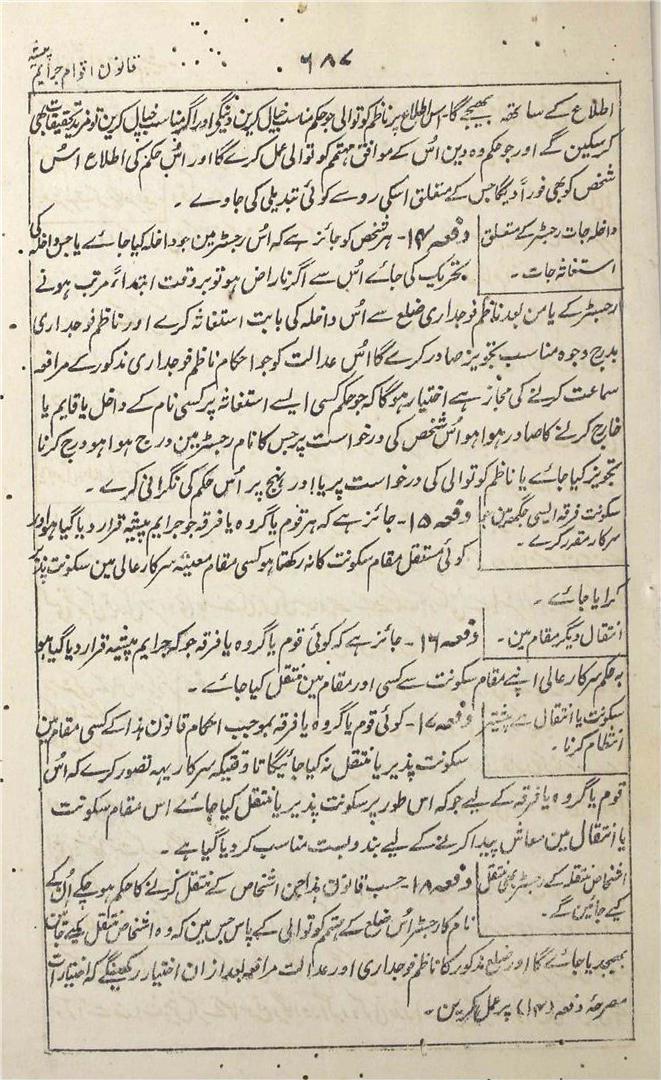 ۶۸۷
قانون اقوام جرایم پیشہ
اطلاع کے ساتھہ بھیجے گا۔ اس اطلاع پر ناظم کوتوالی جو حکم مناسب خیال کرین دینگے اور اگر مناسب خیال کرین تو مزید تحقیقات بھی
کرسکین گے اور جو حکم وہ دین اُس کے موافق مہتمم کوتوالی عمل کرے گا اور اُس حکم کی اطلاع اُس
شخص کو بھی فوراً دیگا جس کے متعلق اسکی رو سے کوئی تبدیلی کی جاوے ۔
داخلہ جات رجسٹر کے متعلق
استغاثہ جات ۔
دفعہ ۱۴۔ ہر شخص کو جائز ہے کہ اُس رجسٹر مین جو داخلہ کیا جائے یا جس داخلہ کی
تحریک کی جائے اُس سے اگر ناراض ہو تو بروقت ابتداءً مرتب ہونے
رجسٹر کے یا من بعد ناظم فوجداری ضلع سے اُس داخلہ کی بابت استغاثہ کرے اور ناظم فوجداری
بدرج وجوہ مناسب تجویز صادر کرے گا اُس عدالت کو جو احکام ناظم فوجداری مذکور کے مرافعہ
سماعت کرنے کی مجاز ہے اختیار ہوگا کہ جو حکم کسی ایسے استغاثہ پر کسی نام کے داخل یا قایم یا
خارج کرنے کا صادر ہوا ہو اُس شخص کی درخواست پر جس کا نام رجسٹر مین درج ہوا ہو درج کرنا
تجویز کیا جائے یا ناظم کوتوالی کی درخواست پر یا اور نہج پر اُس حکم کی نگرانی کرے ۔
سکونت فرقہ ایسی جگہ مین جو
سرکار مقرر کرے ۔
دفعہ ۱۵۔ جائز ہے کہ ہر قوم یا گروہ یا فرقہ جو جرایم پیشہ قرار دیا گیا ہو اور
کوئی مستقل مقام سکونت کا نہ رکھتا ہو کسی مقام معینہ سرکار عالی مین سکونت پذیر
کرایا جائے ۔
انتقال دیگر مقام مین ۔
دفعہ ۱۶۔ جائز ہے کہ کوئی قوم یا گروہ یا فرقہ جو کہ جرایم پیشہ قرار دیا گیا ہو
بہ حکم سرکار عالی اپنے مقام سکونت سے کسی اور مقام مین منتقل کیا جائے ۔
سکونت یا انتقال سے پیشتر
انتظام کرنا ۔
دفعہ ۱۷۔ کوئی قوم یا گروہ یا فرقہ بموجب احکام قانون ہذا کے کسی مقام مین
سکونت پذیر یا منتقل نہ کیا جائیگا تا وقتیکہ سرکار یہہ تصور کرے کہ اُس
قوم یا گروہ یا فرقہ کے لیے جو کہ اس طور پر سکونت پذیر یا منتقل کیا جائے اس مقام سکونت
یا انتقال مین معاش پیدا کرنے کے لیے بندوبست مناسب کردیا گیا ہے ۔
اشخاص منتقلہ کے رجسٹر بھی منتقل
کیے جائین گے ۔
دفعہ ۱۸۔ حسب قانون ہذا جن اشخاص کے منتقل کرنے کا حکم ہوچکے اُن کے
نام کا رجسٹر اُس ضلع کے مہتمم کوتوالی کے پاس جس مین کہ وہ اشخاص منتقل کیے جائین
بھیجدیا جائے گا اور ضلع مذکور کا ناظم فوجداری اور عدالت مرافعہ بعد ازان اختیار رکھینگے کہ اختیارات
مصرحہ دفعہ (۱۴) پر عمل کرین ۔